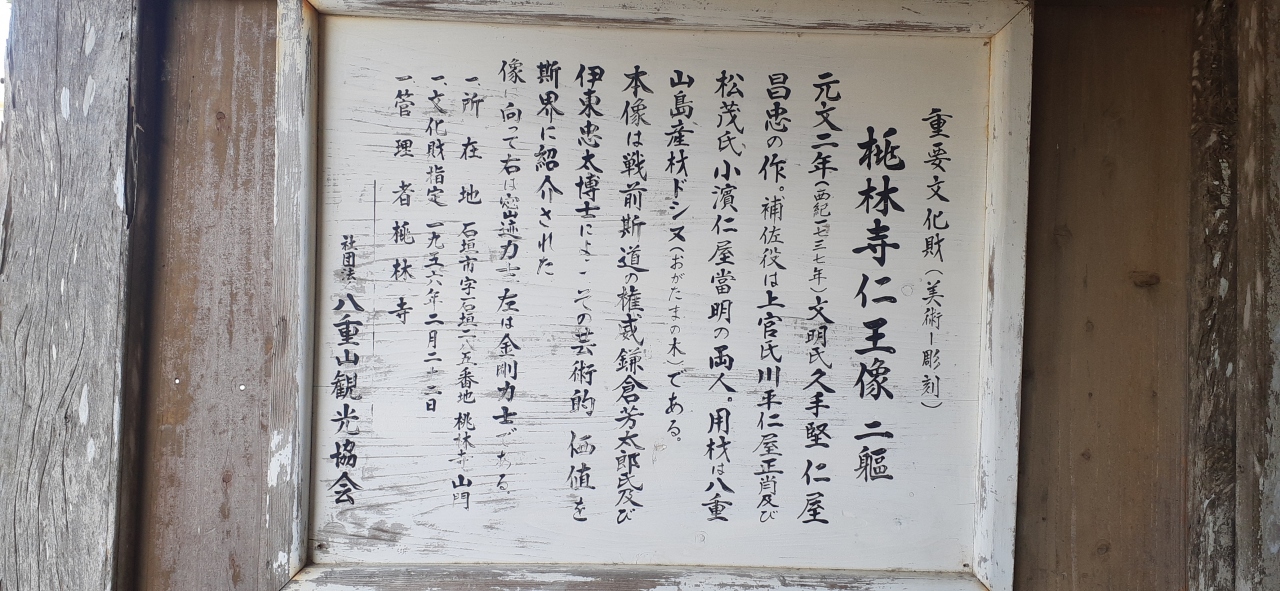 重要文化財（美術ー彫刻）
桃林寺仁王像 二軀
元文二年（西紀一七三七年）文明氏久手堅仁屋
昌忠の作。補佐役は上官氏川平仁屋正肖及び
松茂氏小濱仁屋當明の両人。用材は八重
山島産材ドシヌ（おがたまの木）である。
本像は戦前斯道の権威鎌倉芳太郎氏及び
伊東忠太博士によってその芸術的価値を
斯界に紹介された
像に向って右は 力士 左は金剛力士である。
一、所在地 石垣市字石垣二八五番地桃林寺山門
一、文化財指定 一九五六年二月二十二日
一、管理者 桃林寺
社団法 八重山観光協会